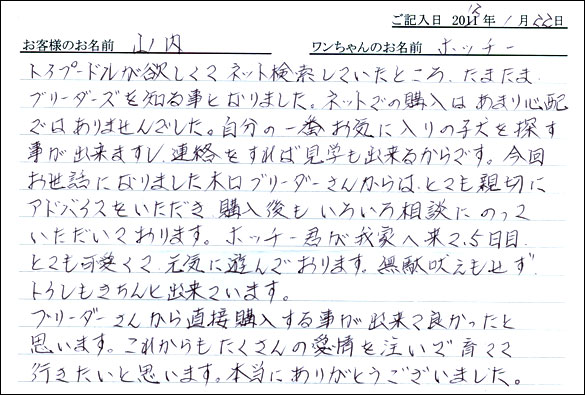 ご記入日 2013年 1月22日
お客様のお名前 山内 ワンちゃんのお名前 ホッチー
トイプードルが欲しくて ネット検索していたところ、たまたま
ブリーダーズを知る事となりました。ネットでの購入は あまり心配
ではありませんでした。自分の一番 お気に入りの子犬を探す
事が出来ますし、連絡をすれば見学も出来るからです。今回
お世話になりました木口ブリーダーさんからは、とても親切に
アドバイスをいただき 購入後も いろいろ相談に のって
いただいております。ホッチー君が我家へ来て、5日目
とても可愛くて、元気に遊んでおります。無駄吠えもせず
トイレもきちんと出来ています。
ブリーダーさんから直接購入する事が出来て良かったと
思います。これからも たくさんの愛情を注いで育てて
行きたいと思います。本当にありがとうございました。